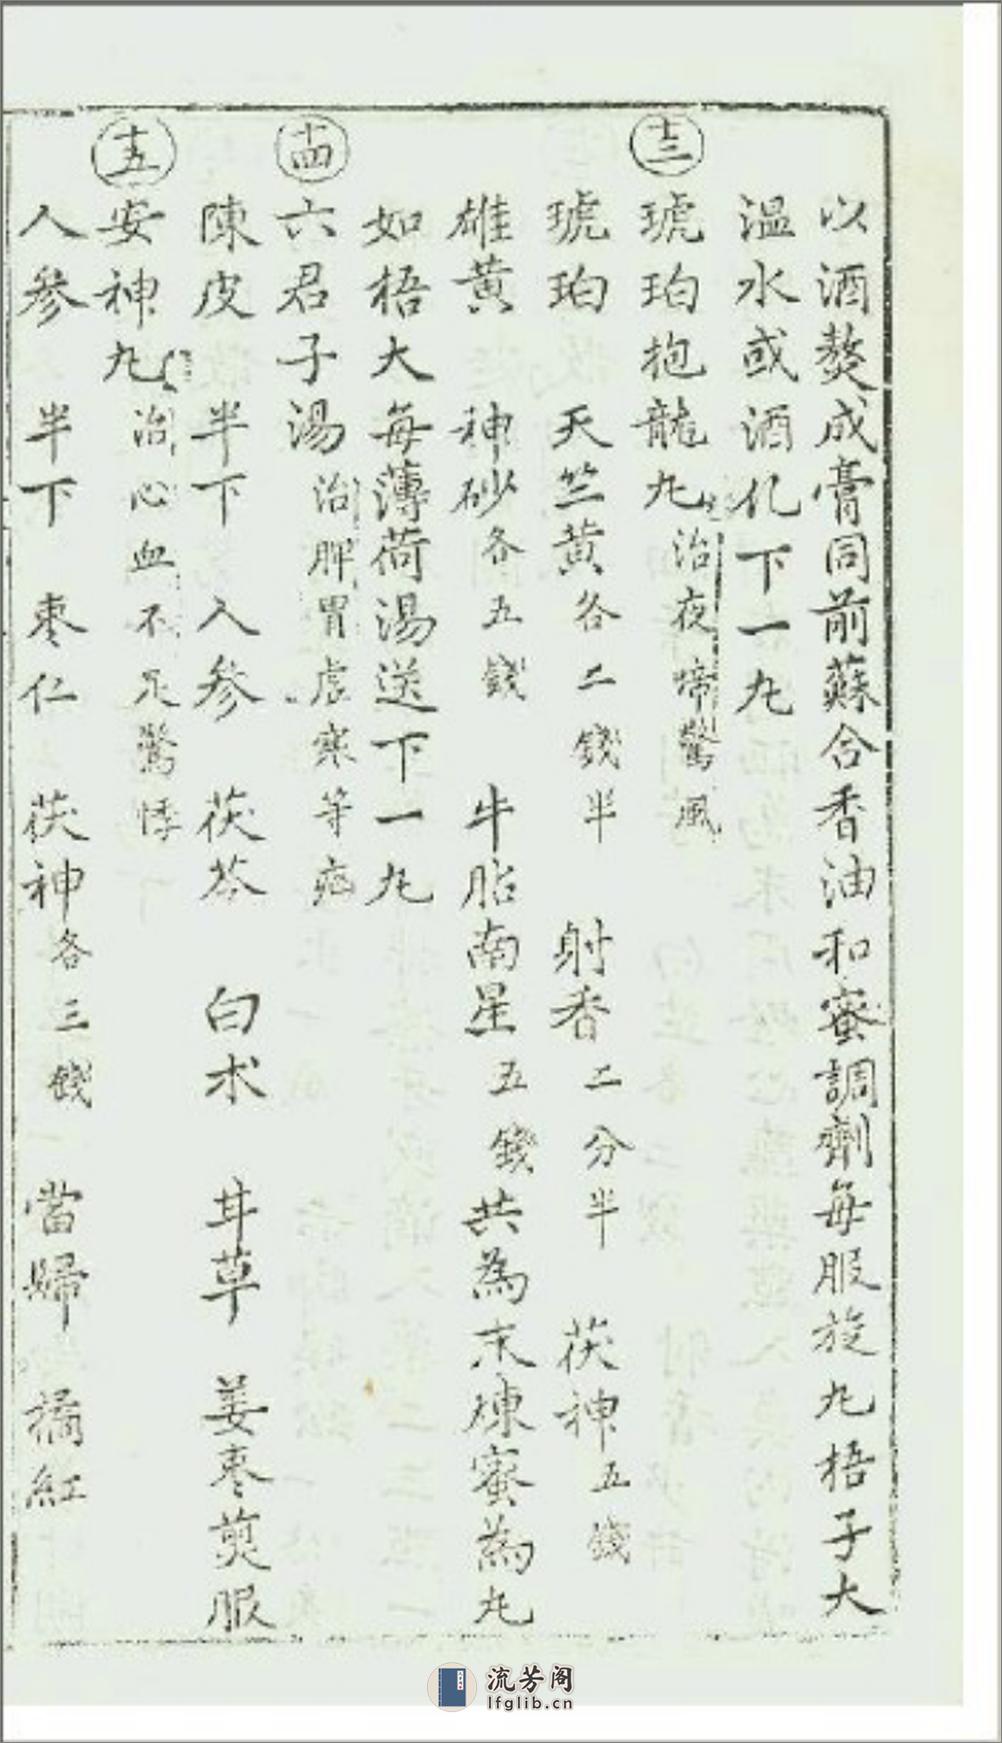 以酒熬成膏同前蘇合香油和蜜調劑每服旋丸梧子大
溫水或酒化下一丸
十三 琥珀抱龍丸 治夜啼驚風
琥珀 天竺黃各二錢半 射香二分半 茯神五錢
雄黃 神砂各五錢 牛胎南星五錢共為末煉蜜為丸
如梧大每薄荷湯送下一丸
十四 六君子湯 治脾胃虛寒等症
陳皮 半下 人參 茯苓 白朮 甘草 姜枣煎服
十五 安神丸 治心血不足驚悸
人參 半下 枣仁 茯神各三錢 當歸 橘紅
流芳阁
lfglib.cn